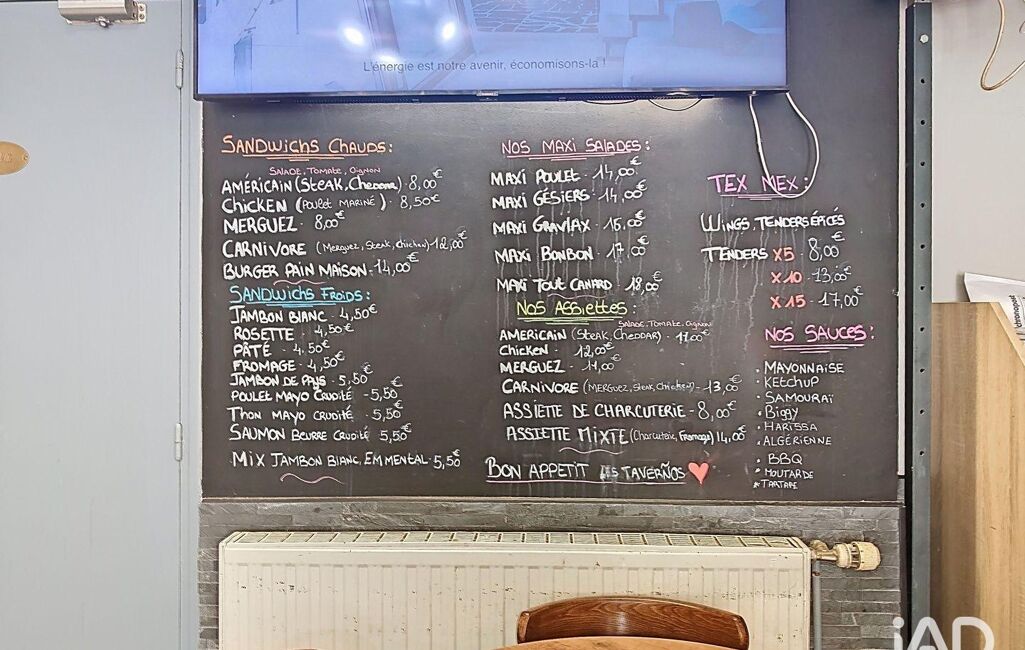 L'énergie est notre avenir, économisons-la !
SANDWICHS CHAUDS:
SALADE, TOMATE, OIGNON
AMÉRICAIN (STEAK, CHEDDAR) · 8,00€
CHICKEN (POULET MARINÉ) · 8,50€
MERGUEZ · 8,00€
CARNIVORE (MERGUEZ, STEAK, CHICKEN) · 12,00€
BURGER PAIN MAISON · 14,00€
SANDWICHS FROIDS:
JAMBON BLANC · 4,50€
ROSETTE · 4,50€
PÂTÉ · 4,50€
FROMAGE · 4,50€
JAMBON DE PAYS · 5,50€
POULET MAYO CRUDITÉ · 5,50€
THON MAYO CRUDITÉ · 5,50€
SAUMON BEURRE CRUDITÉ 5,50€
MIX JAMBON BLANC, EMMENTAL · 5,50€
NOS MAXI SALADES:
MAXI POULET · 14,00€
MAXI GÉSIERS · 14,00€
MAXI GRAVLAX · 16,00€
MAXI BONBON · 17,00€
MAXI TOUT CANARD · 18,00€
NOS ASSIETTES:
SALADE, TOMATE, OIGNON
AMERICAIN (STEAK, CHEDDAR) · 11,00€
CHICKEN · 12,00€
MERGUEZ · 11,00€
CARNIVORE (MERGUEZ, STEAK, CHICKEN) · 13,00€
ASSIETTE DE CHARCUTERIE - 8,00€
ASSIETTE MIXTE (Charcuterie, Fromage) 14,00€
BON APPETIT LES TAVERÑOS
TEX MEX:
WINGS, TENDERS ÉPICÉS
TENDERS X5 · 8,00€
X10 · 13,00€
X15 · 17,00€
NOS SAUCES:
· MAYONNAISE
· KETCHUP
· SAMOURAÏ
· BIGGY
· HARISSA
· ALGÉRIENNE
· BBQ
* MOUTARDE
* TARTARE
chronopost
iAD